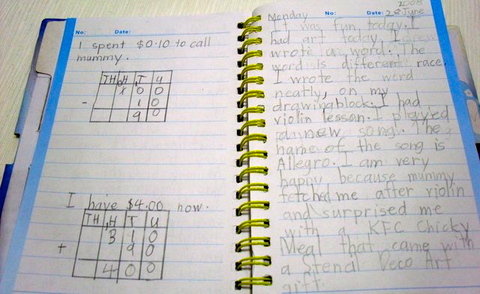 No: Date:
I spent $0.10 to call
mummy.
TH H T U
1 0 0
- 1 0
9 0
I have $4.00 now.
TH H T U
3 1 0
+ 9 0
4 0 0
Monday No: Date: June
I was fun today. I
had art today. I
wrote a word. The
word is different race.
I wrote the word
neatly, on my
drawing block. I had
violin lesson. I played
a new song. The
name of the song is
Allegro. I am very
happy because mummy
fetched me after violin
and surprised me
with a KFC Chicky
Meal that came with
a Deco Art
gift.